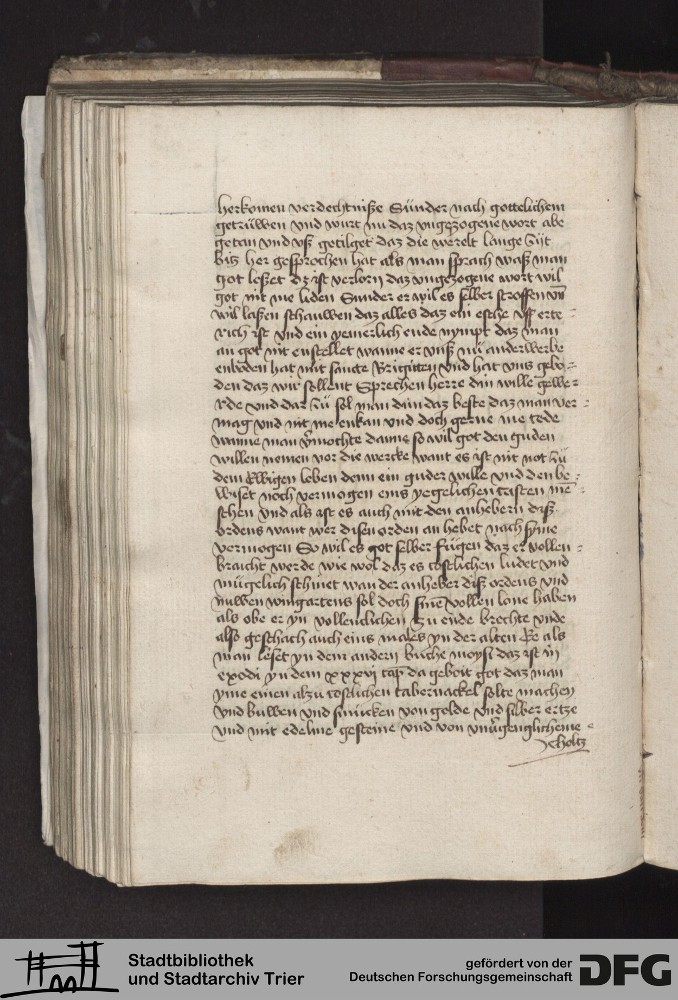 herkomen verdechtniße Sünder nach gottelichem
getrüwen vnd wurt nu daz vngezogene wort abe
getan vnd vß getilget daz die werelt lange zijt
biß her gesprochen hat als man sprach waß man
got leßet dz ist verlorn daz vngezogene wort wil
got nit me liden Sunder er wil es selber stroffen vn̄
wil laßen schauwen daz alles daz ein esche vff erte
rich ist vnd ein yemerlich ende nympt daz man
an got nit enstellet wanne er vnß nu anderwerbe
enboden hat mit sancte Brigitten vnd hat vns gebo
den daz wir sollent Sprechen herre din wille gewer
de vnd dar zu sol man dun daz beste daz man ver
mag vnd nit me enkan vnd doch gerne me tede
wanne man v̄mochte danne so wil got den guden
willen nemen vor die wercke want es ist nit not zu
dem ewigen leben denn ein guder wille vnd den be
wiset noch vermogen eins yegelichen cristen me
schen vnd als ist es auch mit den anhebern diß
ordens want wer disen orden an hebet nach syme
vermogen So wil es got selber fügen daz er vollen
bracht werde wie wol daz es costlichen ludet vnd
mügelich schinet wan der anheber diß ordens vnd
nuwen wingartens sol doch sine vollen lone haben
als obe er yn vollenclichen zu ende brechte vnde
also geschach auch eins males yn der alten Ee als
man leset yn dem andern buche moysi daz ist in
exodi yn dem xxxvi cap da geboit got daz man
yme einen also costlichen tabernackel solte machen
vnd buwen vnd smücken von golde vnd silber ertze
vnd mit edelme gesteine vnd von vnv̄genglicheme
holtz
Stadtbibliothek
und Stadtarchiv Trier
gefördert von der
Deutschen Forschungsgemeinschaft
DFG